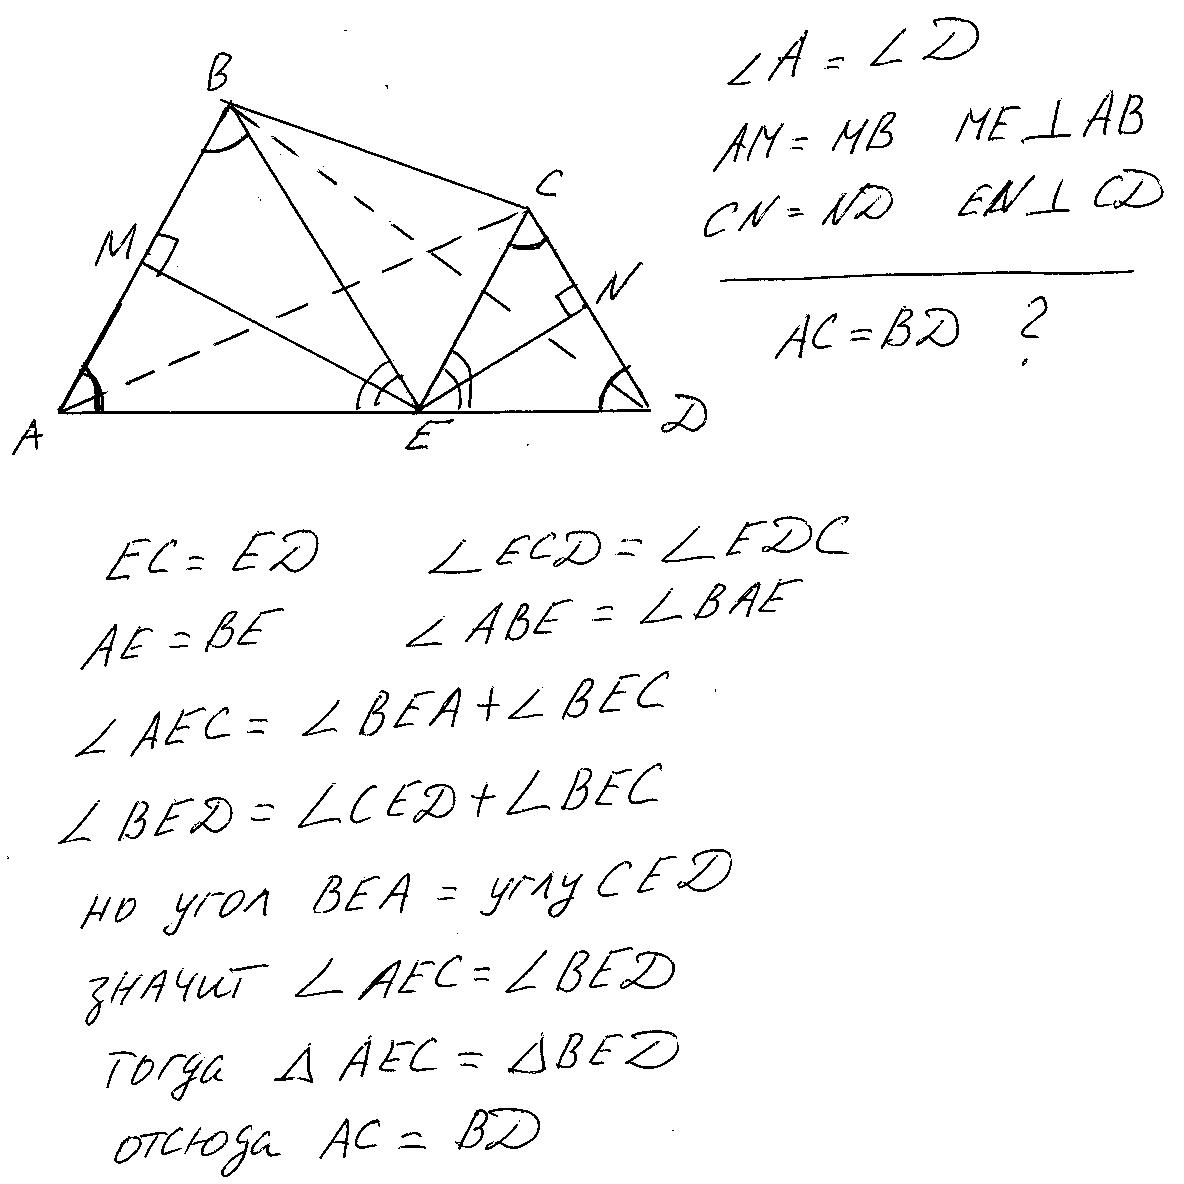 B
C
M
N
A
E
D
∠A = ∠D
AM = MB ME ⊥ AB
CN = ND EN ⊥ CD
AC = BD ?
EC = ED ∠ECD = ∠EDC
AE = BE ∠ABE = ∠BAE
∠AEC = ∠BEA + ∠BEC
∠BED = ∠CED + ∠BEC
но угол BEA = углу CED
значит ∠AEC = ∠BED
тогда Δ AEC = ΔBED
отсюда AC = BD